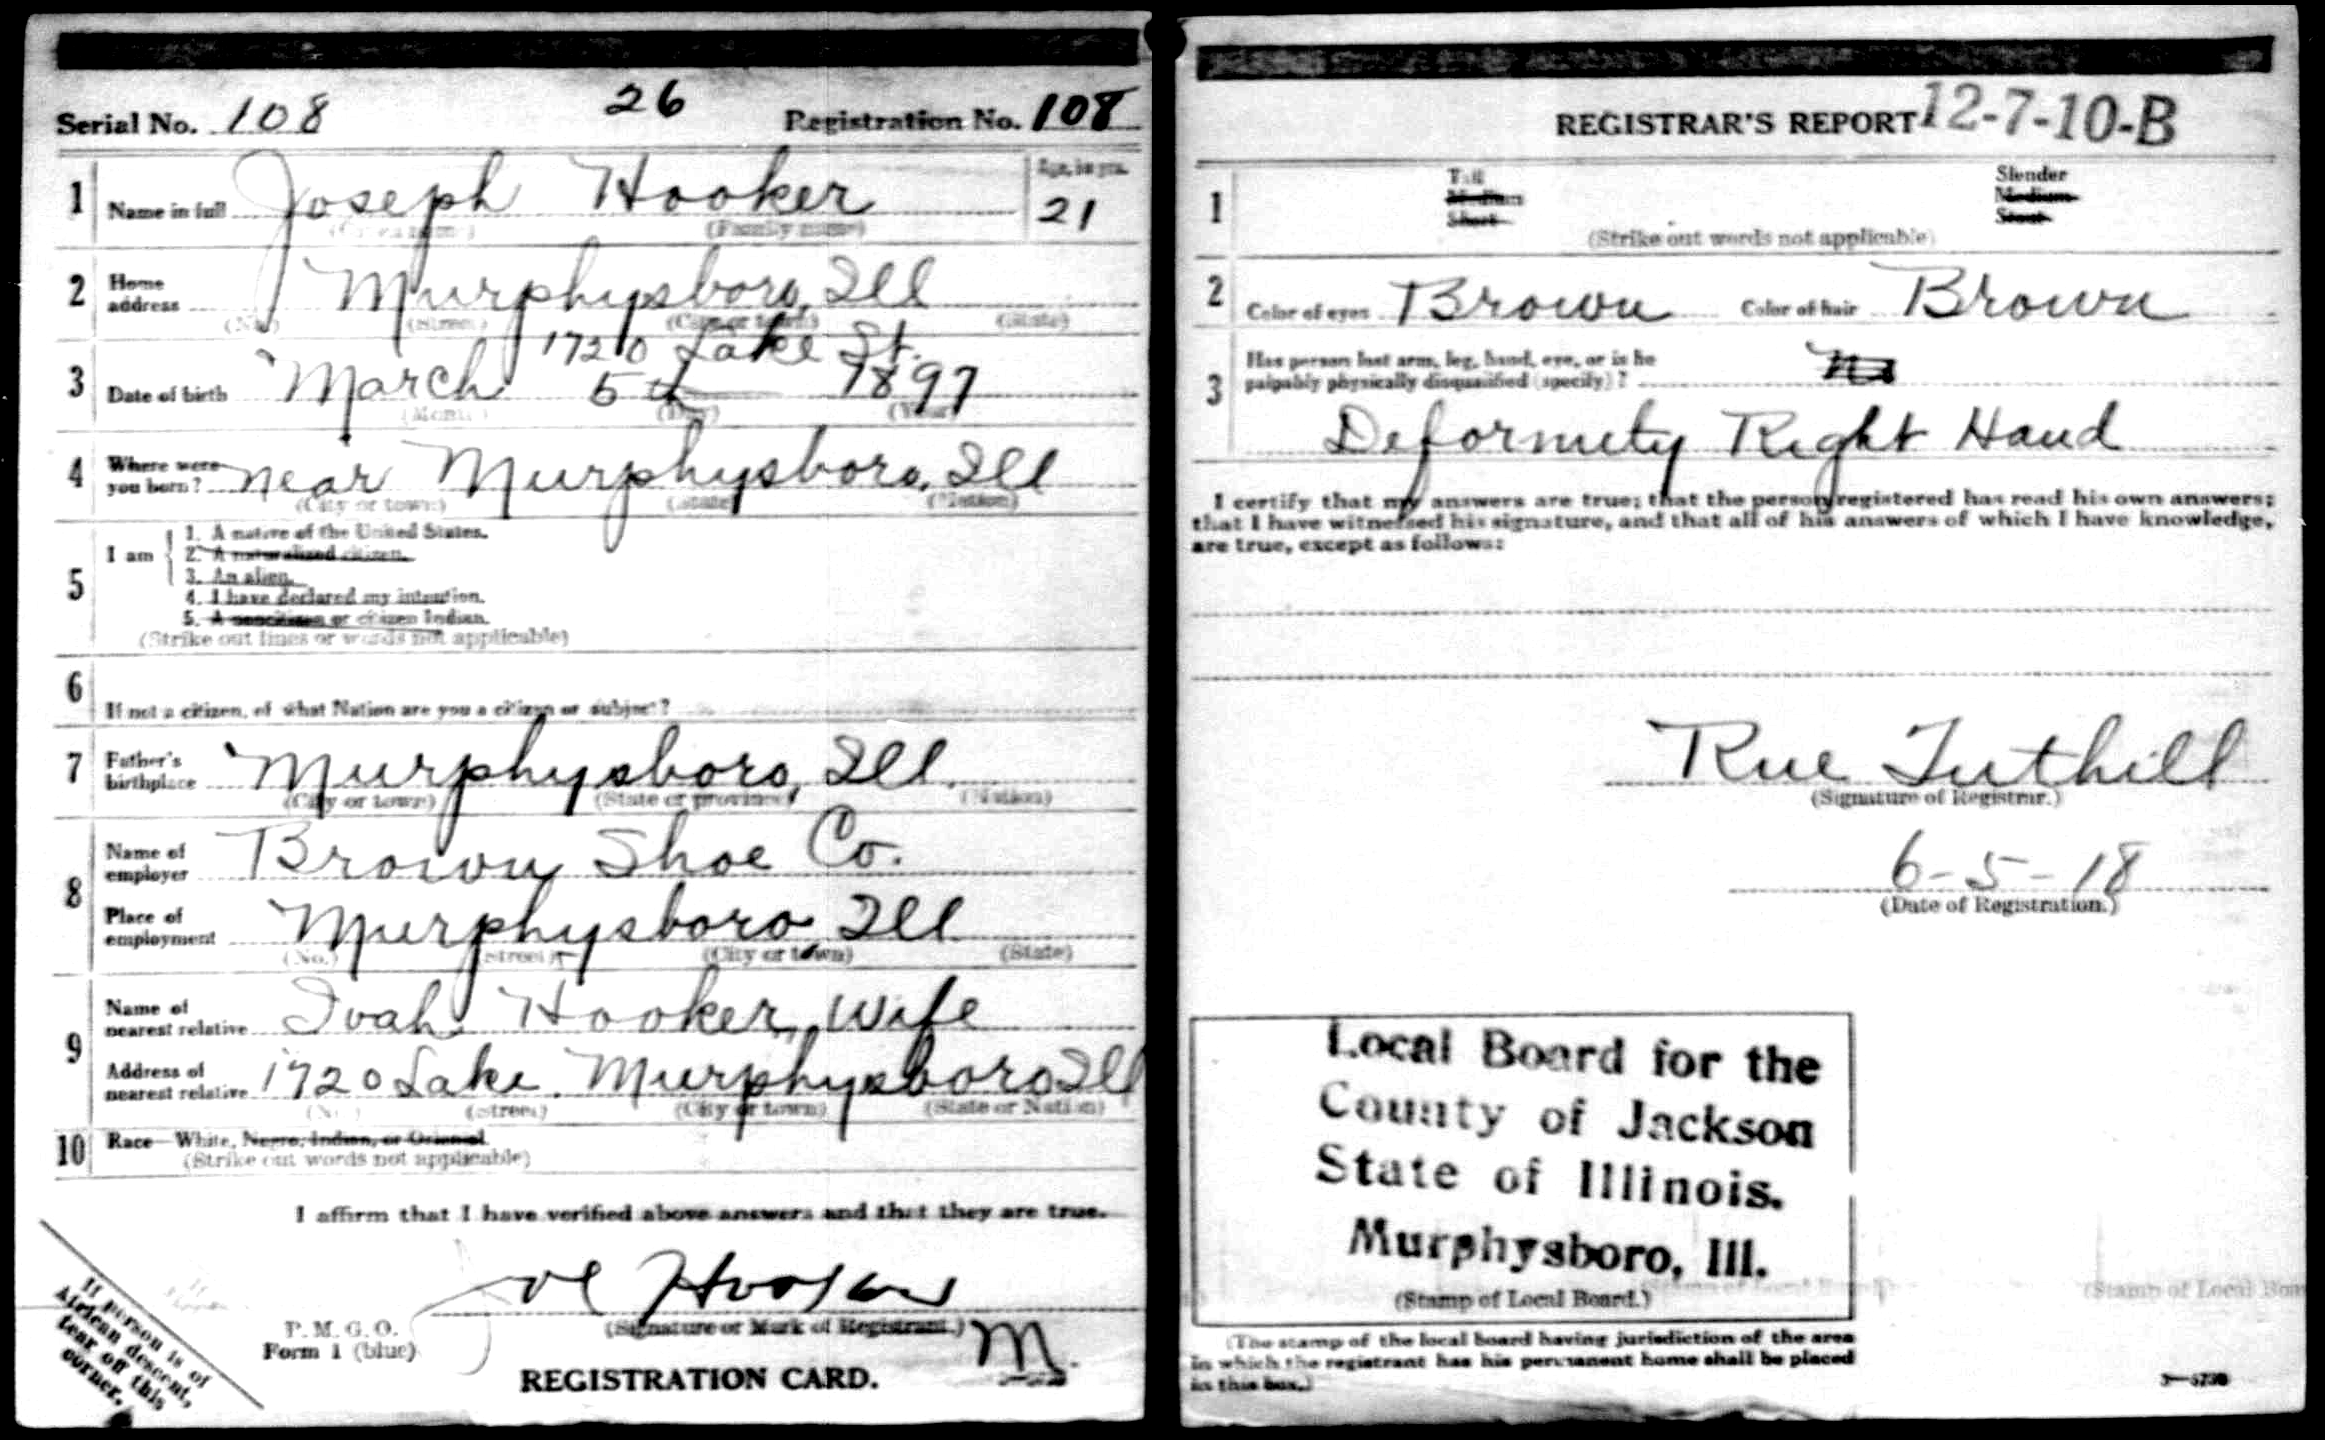 Serial No. 108 26 Registration No. 108
1 Name in full Joseph Hooker Age, in yrs. 21
(Given name) (Family name)
2 Home address Murphysboro, Ill
(No.) (Street) (City or town) (State)
1720 Lake St.
3 Date of birth March 5th 1897
(Month) (Day) (Year)
4 Where were you born? near Murphysboro, Ill
(City or town) (State) (Nation)
5 I am
1. A native of the United States.
2. A naturalized citizen.
3. An alien.
4. I have declared my intention.
5. A noncitizen or citizen Indian.
(Strike out lines or words not applicable)
6 If not a citizen, of what Nation are you a citizen or subject?
7 Father's birthplace Murphysboro, Ill.
(City or town) (State or province) (Nation)
8 Name of employer Brown Shoe Co.
Place of employment Murphysboro Ill
(No.) (Street) (City or town) (State)
9 Name of nearest relative Ivah Hooker, Wife
Address of nearest relative 1720 Lake. Murphysboro Ill
(No.) (Street) (City or town) (State or Nation)
10 Race—White, Negro, Indian, or Oriental
(Strike out words not applicable)
I affirm that I have verified above answers and that they are true.
Joe Hooker
(Signature or Mark of Registrant.)
M.
P. M. G. O.
Form 1 (blue)
REGISTRATION CARD.
If person is of
African descent,
tear off this
corner.
REGISTRAR'S REPORT 12-7-10-B
1 Tall Slender
Medium Medium
Short Stout
(Strike out words not applicable)
2 Color of eyes Brown Color of hair Brown
3 Has person lost arm, leg, hand, eye, or is he
palpably physically disqualified (specify)? No
Deformity Right Hand
I certify that my answers are true; that the person registered has read his own answers;
that I have witnessed his signature, and that all of his answers of which I have knowledge,
are true, except as follows:
Rue Tuthill
(Signature of Registrar.)
6-5-18
(Date of Registration.)
Local Board for the
County of Jackson
State of Illinois.
Murphysboro, Ill.
(Stamp of Local Board.)
(Stamp of Local Boar
(The stamp of the local board having jurisdiction of the area
in which the registrant has his permanent home shall be placed
in this box.)